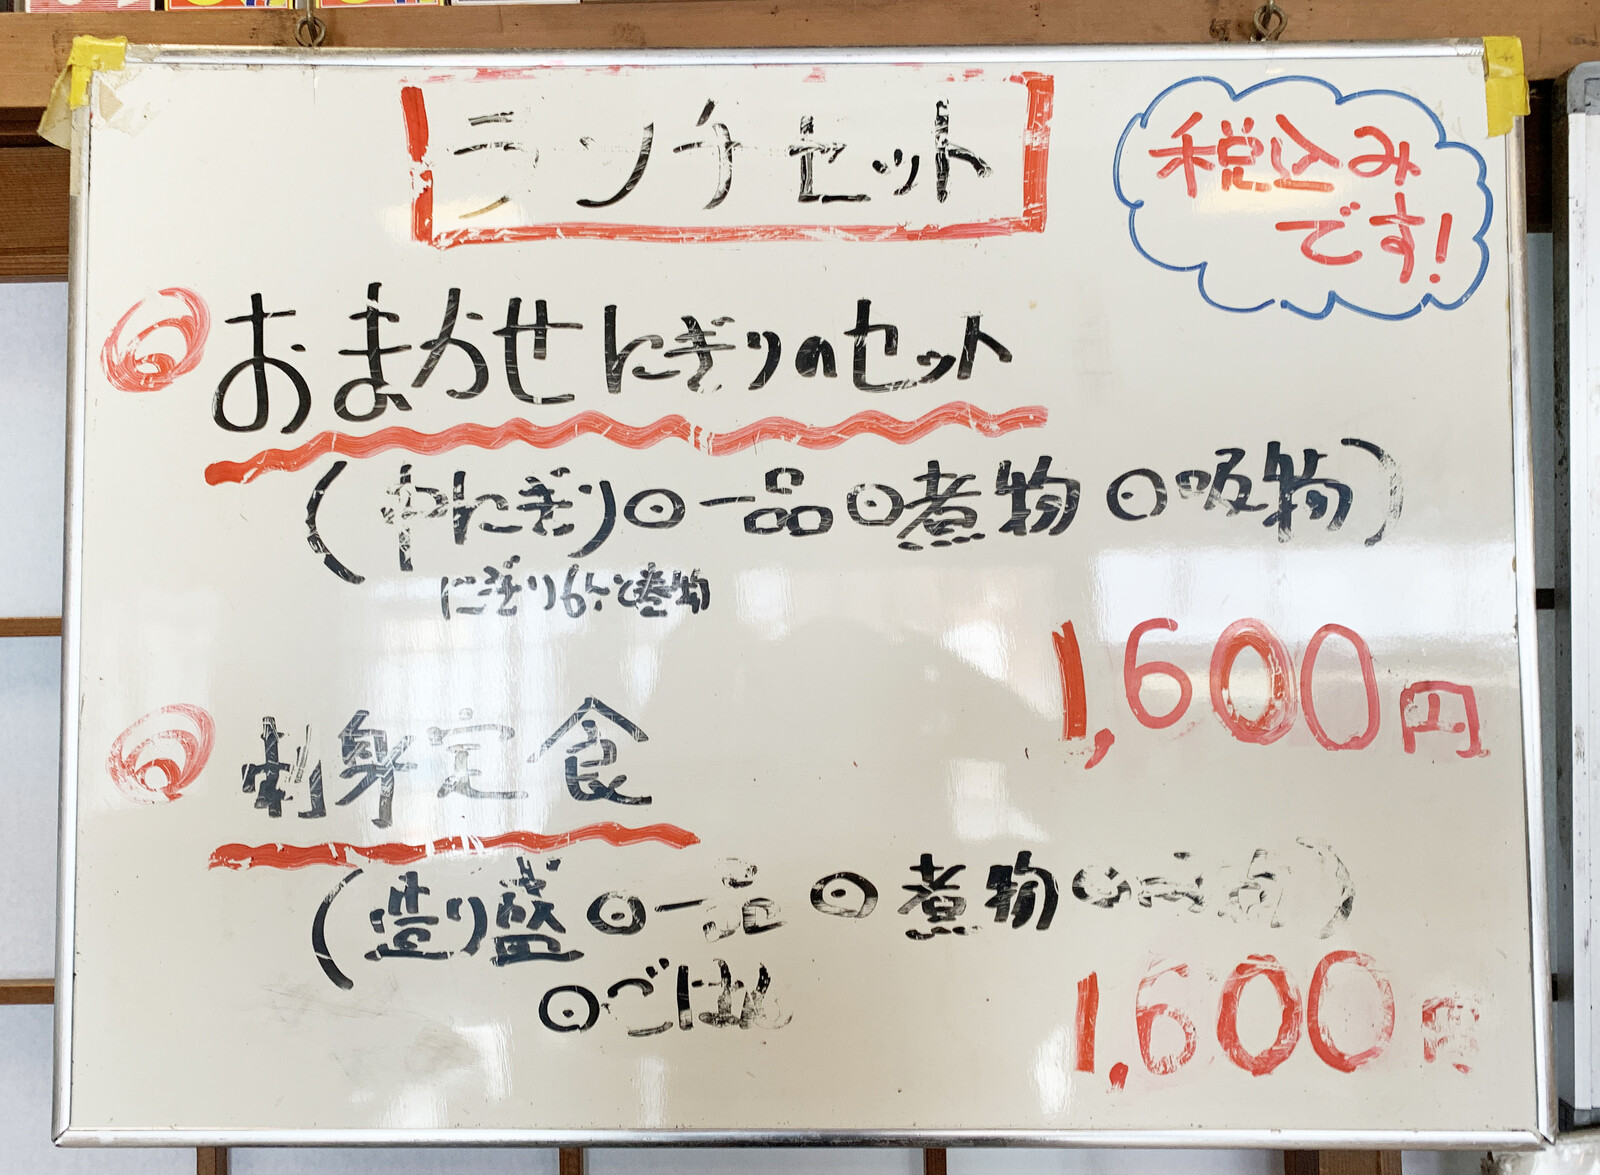 ランチセット
税込み
です!
おまかせにぎりのセット
(中にぎり⊙一品⊙煮物⊙吸物)
にぎり6ケと巻物
1,600円
刺身定食
(造り盛⊙一品⊙煮物⊙吸物)
⊙ごはん
1,600円